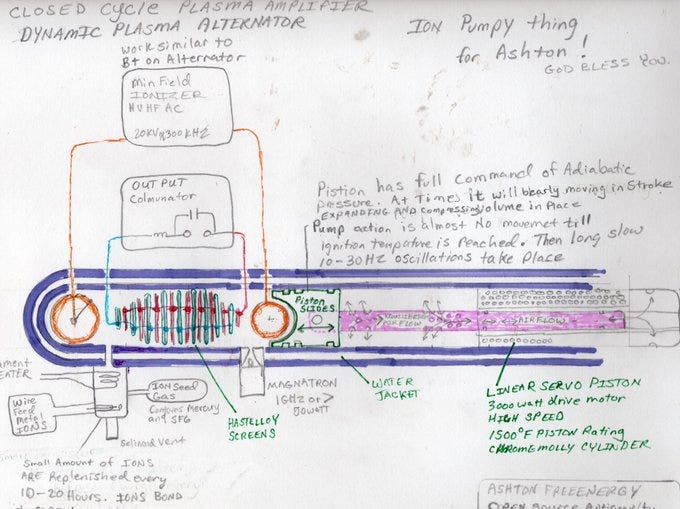 CLOSED CYCLE PLASMA AMPLIFIER
DYNAMIC PLASMA ALTERNATOR
ION Pumpy thing
for Ashton!
GOD BLESS YOU.
work similar to
B+ on Alternator
Min Field
IONIZER
HVHF AC
20KV@300KHZ
OUTPUT
Colmunator
Pistion has full Command of Adiabatic
pressure. At Times it will bearly moving in Stroke
EXPANDING AND compressing volume in Place
Pump action is almost No movemet till
ignition tempature is Reached. Then long slow
10-30HZ oscillations take Place
Piston
SLIDES
FOR FLOW
AIRFLOW
ament
EATER
Wire
Feed
Metal
IONS
ION Seed
Gas
Contains Mercury
and SF6
Selinoid Vent
HASTELLOY
SCREENS
MAGNATRON
1GHZ or >
Jowatt
WATER
JACKET
LINEAR SERVO PISTON
3000 watt drive motor
HIGH SPEED
1500°F PISTON Rating
CHROMEMOLLY CYLINDER
Small Amount of IONS
ARE Replenished every
10-20 Hours. IONS BOND
ASHTON FREEENERGY
OPEN Source